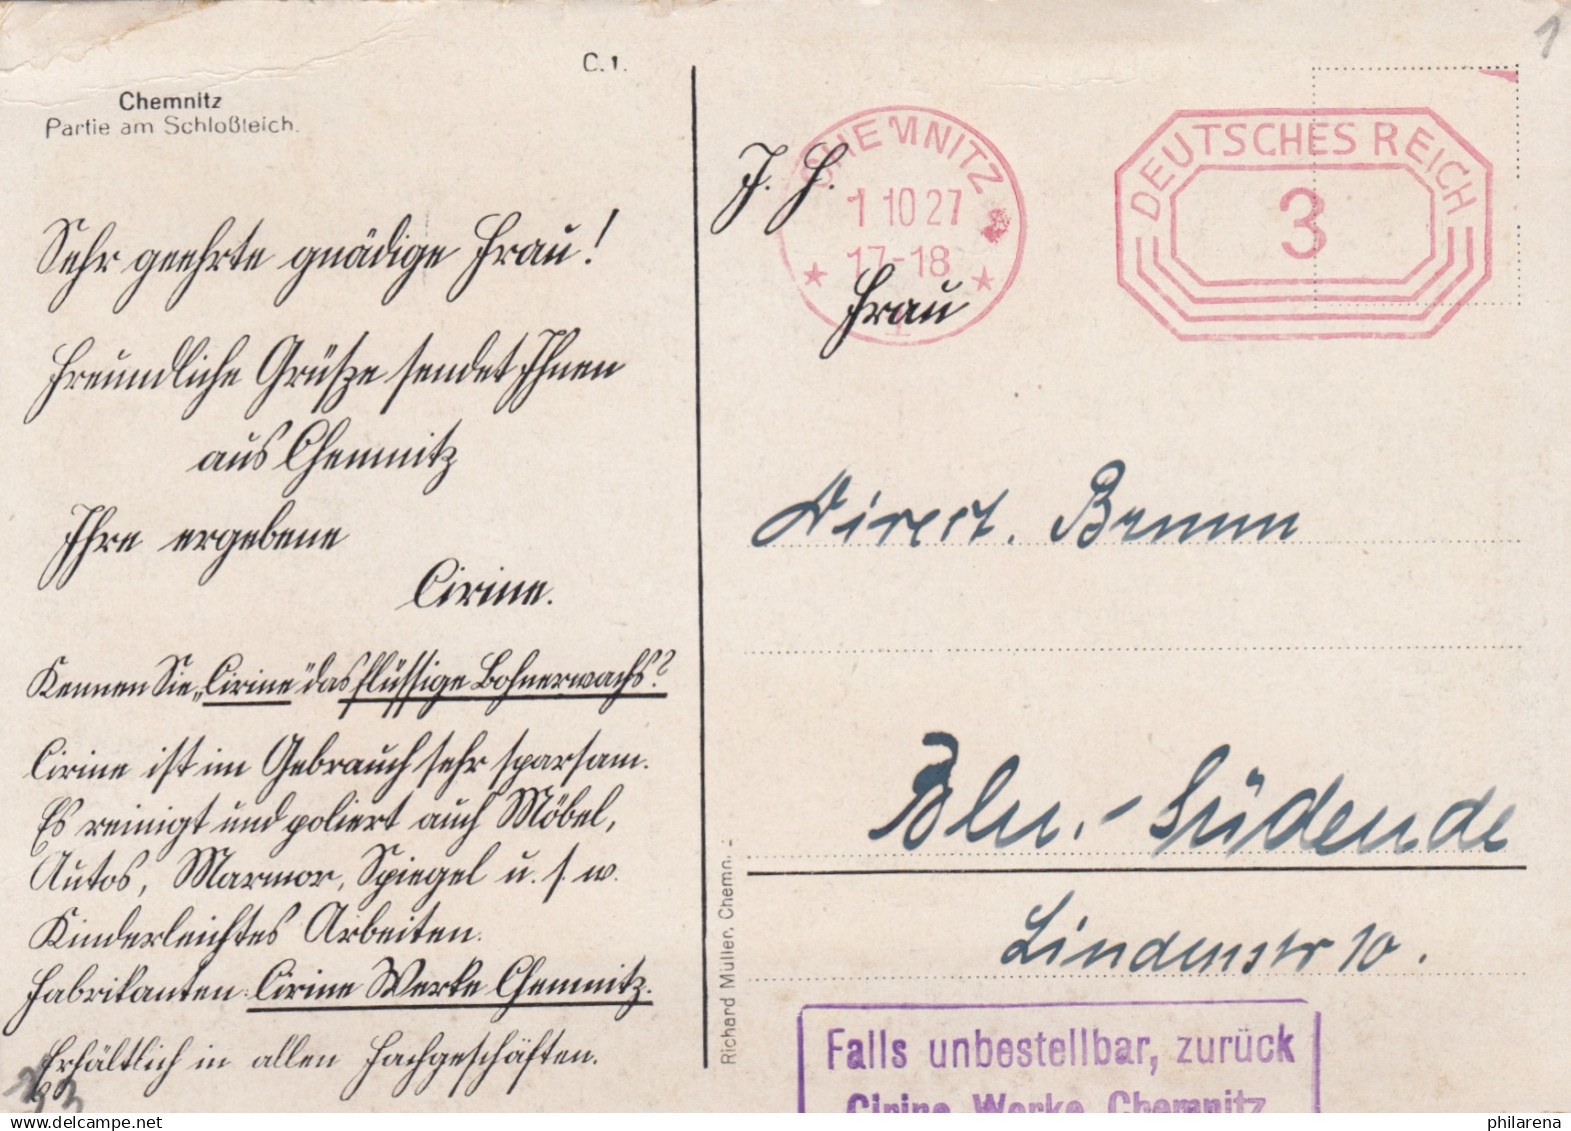 C. 1.
Chemnitz
Partie am Schloßteich.
Sehr geehrte gnädige Frau!
Freundliche Grüsze sendet Ihnen
aus Chemnitz
Ihre ergebene
Cirine.
Kennen Sie „Cirine" das flüssige Bohnerwachs?
Cirine ist im Gebrauch sehr sparsam.
Es reinigt und poliert auch Möbel,
Autos, Marmor, Spiegel u. s. w.
Kinderleichtes Arbeiten.
Fabrikanten: Cirine Werke Chemnitz.
Erhältlich in allen Fachgeschäften.
Richard Müller, Chemn. -
CHEMNITZ
1 10 27
17-18
* 1 *
DEUTSCHES REICH
3
J. H.
Frau
Direct. Brunn
Bln.-Südende
Lindenstr 10.
Falls unbestellbar, zurück
Cirine Werke Chemnitz
1
philarena